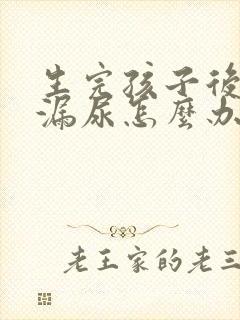 生完孩子後
漏尿怎麼办
老王家的老三